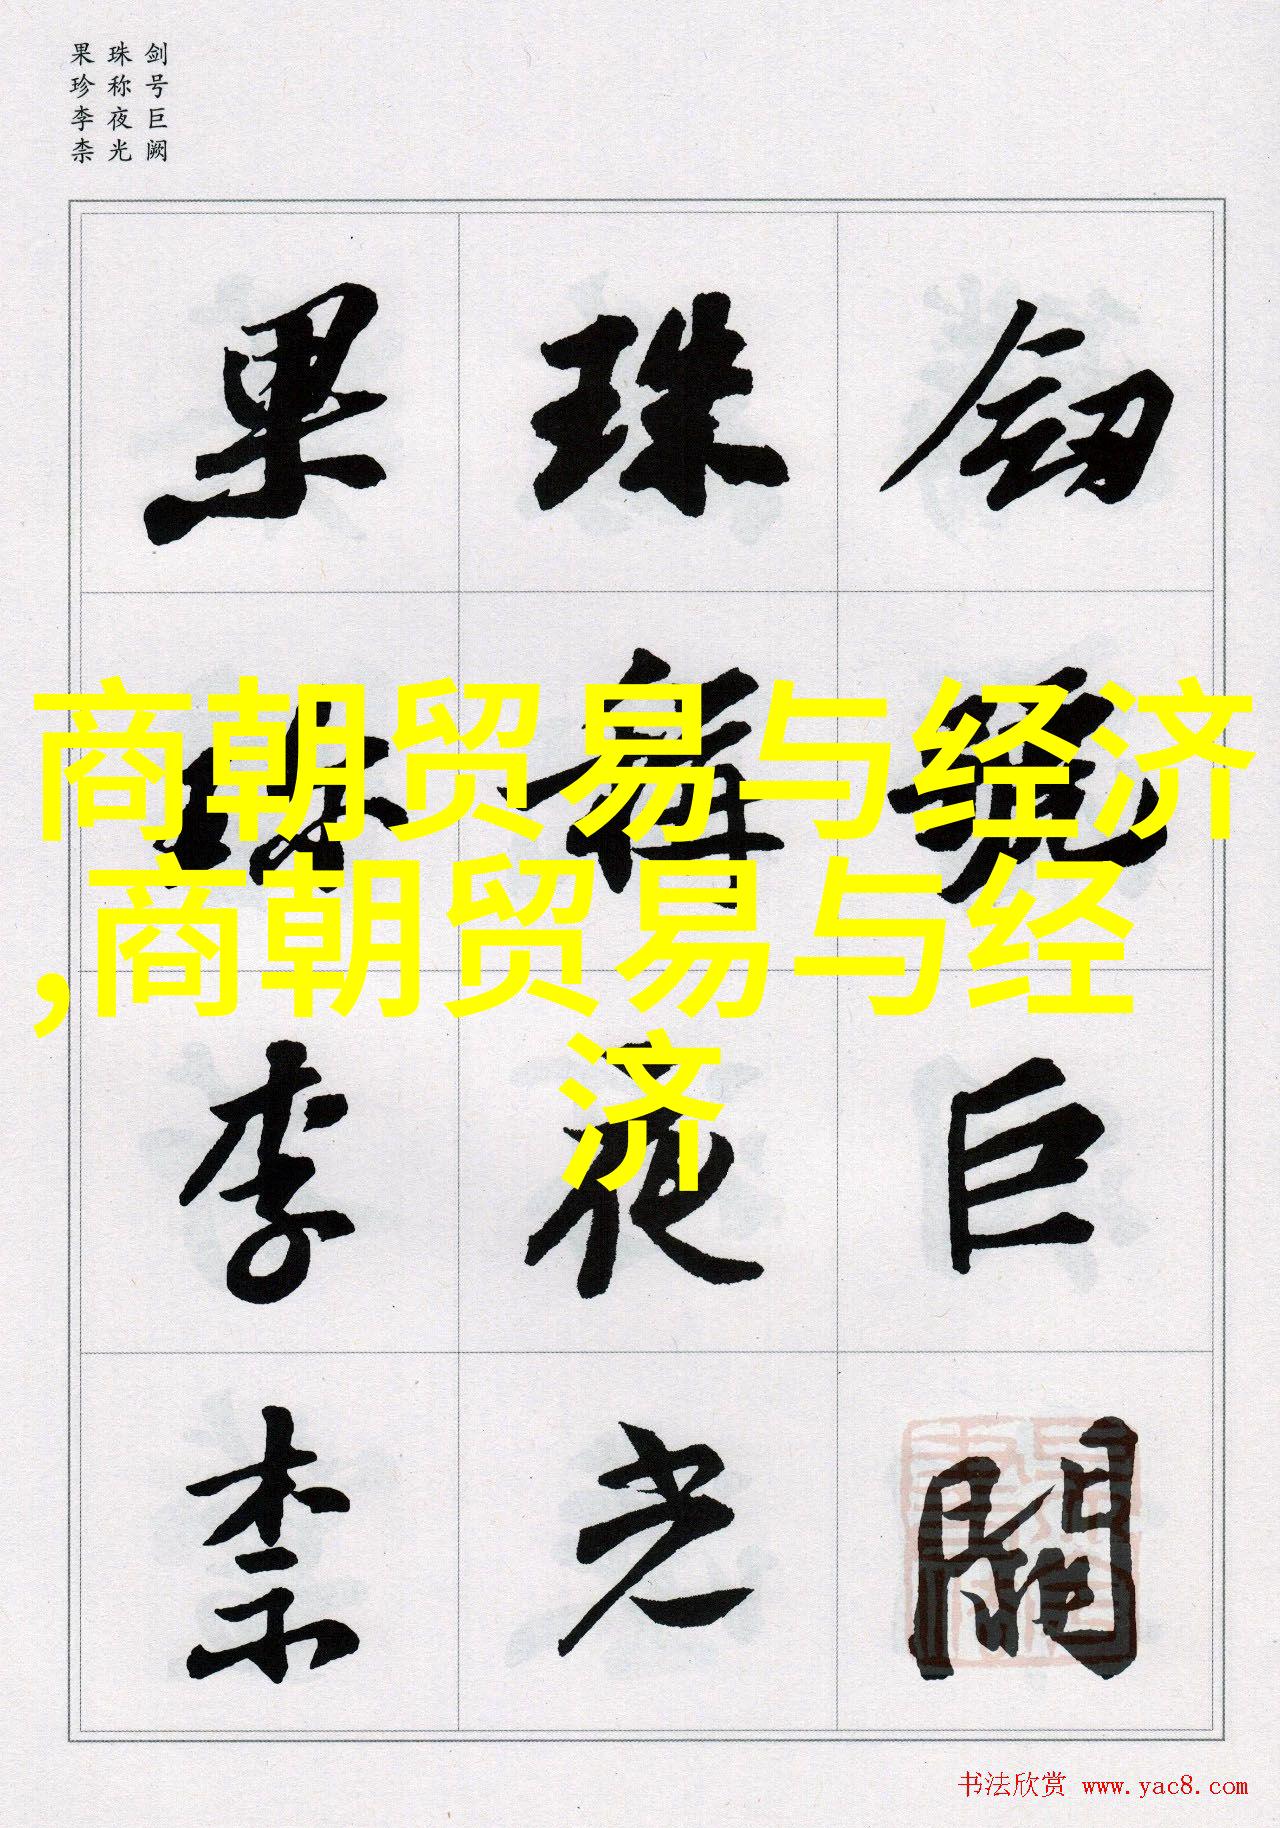 剑号巨阙
珠称夜光
果珍李柰
釰號巨闕
珠稱夜光
果珍李柰
商朝贸易与经济
,商朝贸易与经
济
书法欣赏 www.yac8.com